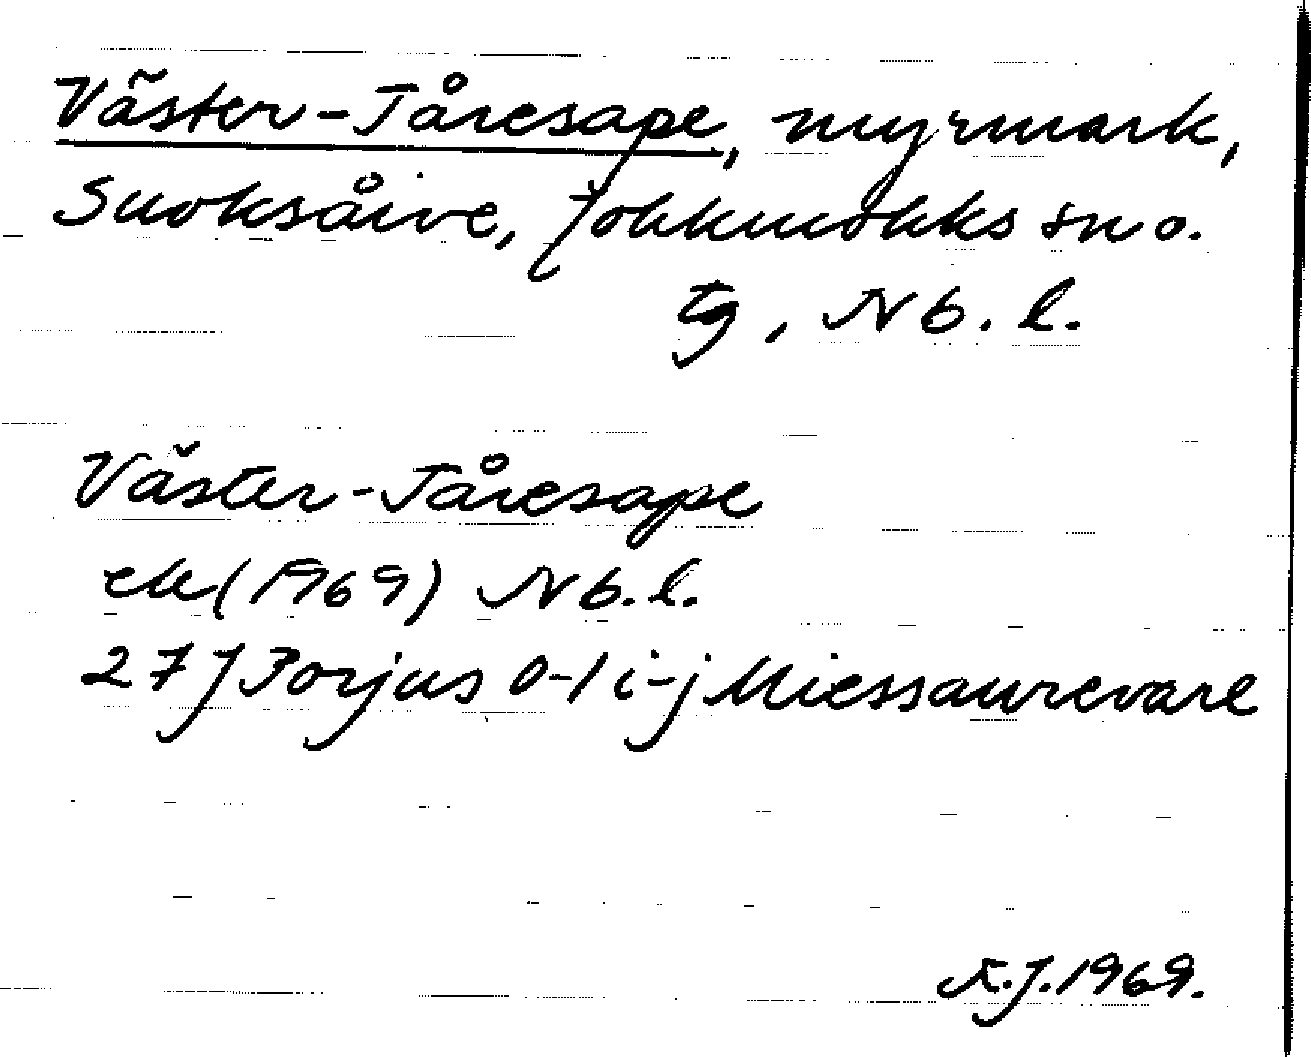 Väster-Tåresape, myrmark,
Suoksåive, Jokkmokks sn o.
tg, Nb. l.
Väster-Tåresape
ek (1969) Nb. l.
27 J Porjus 0-1 i-j Miessaurevare
N.J. 1969.